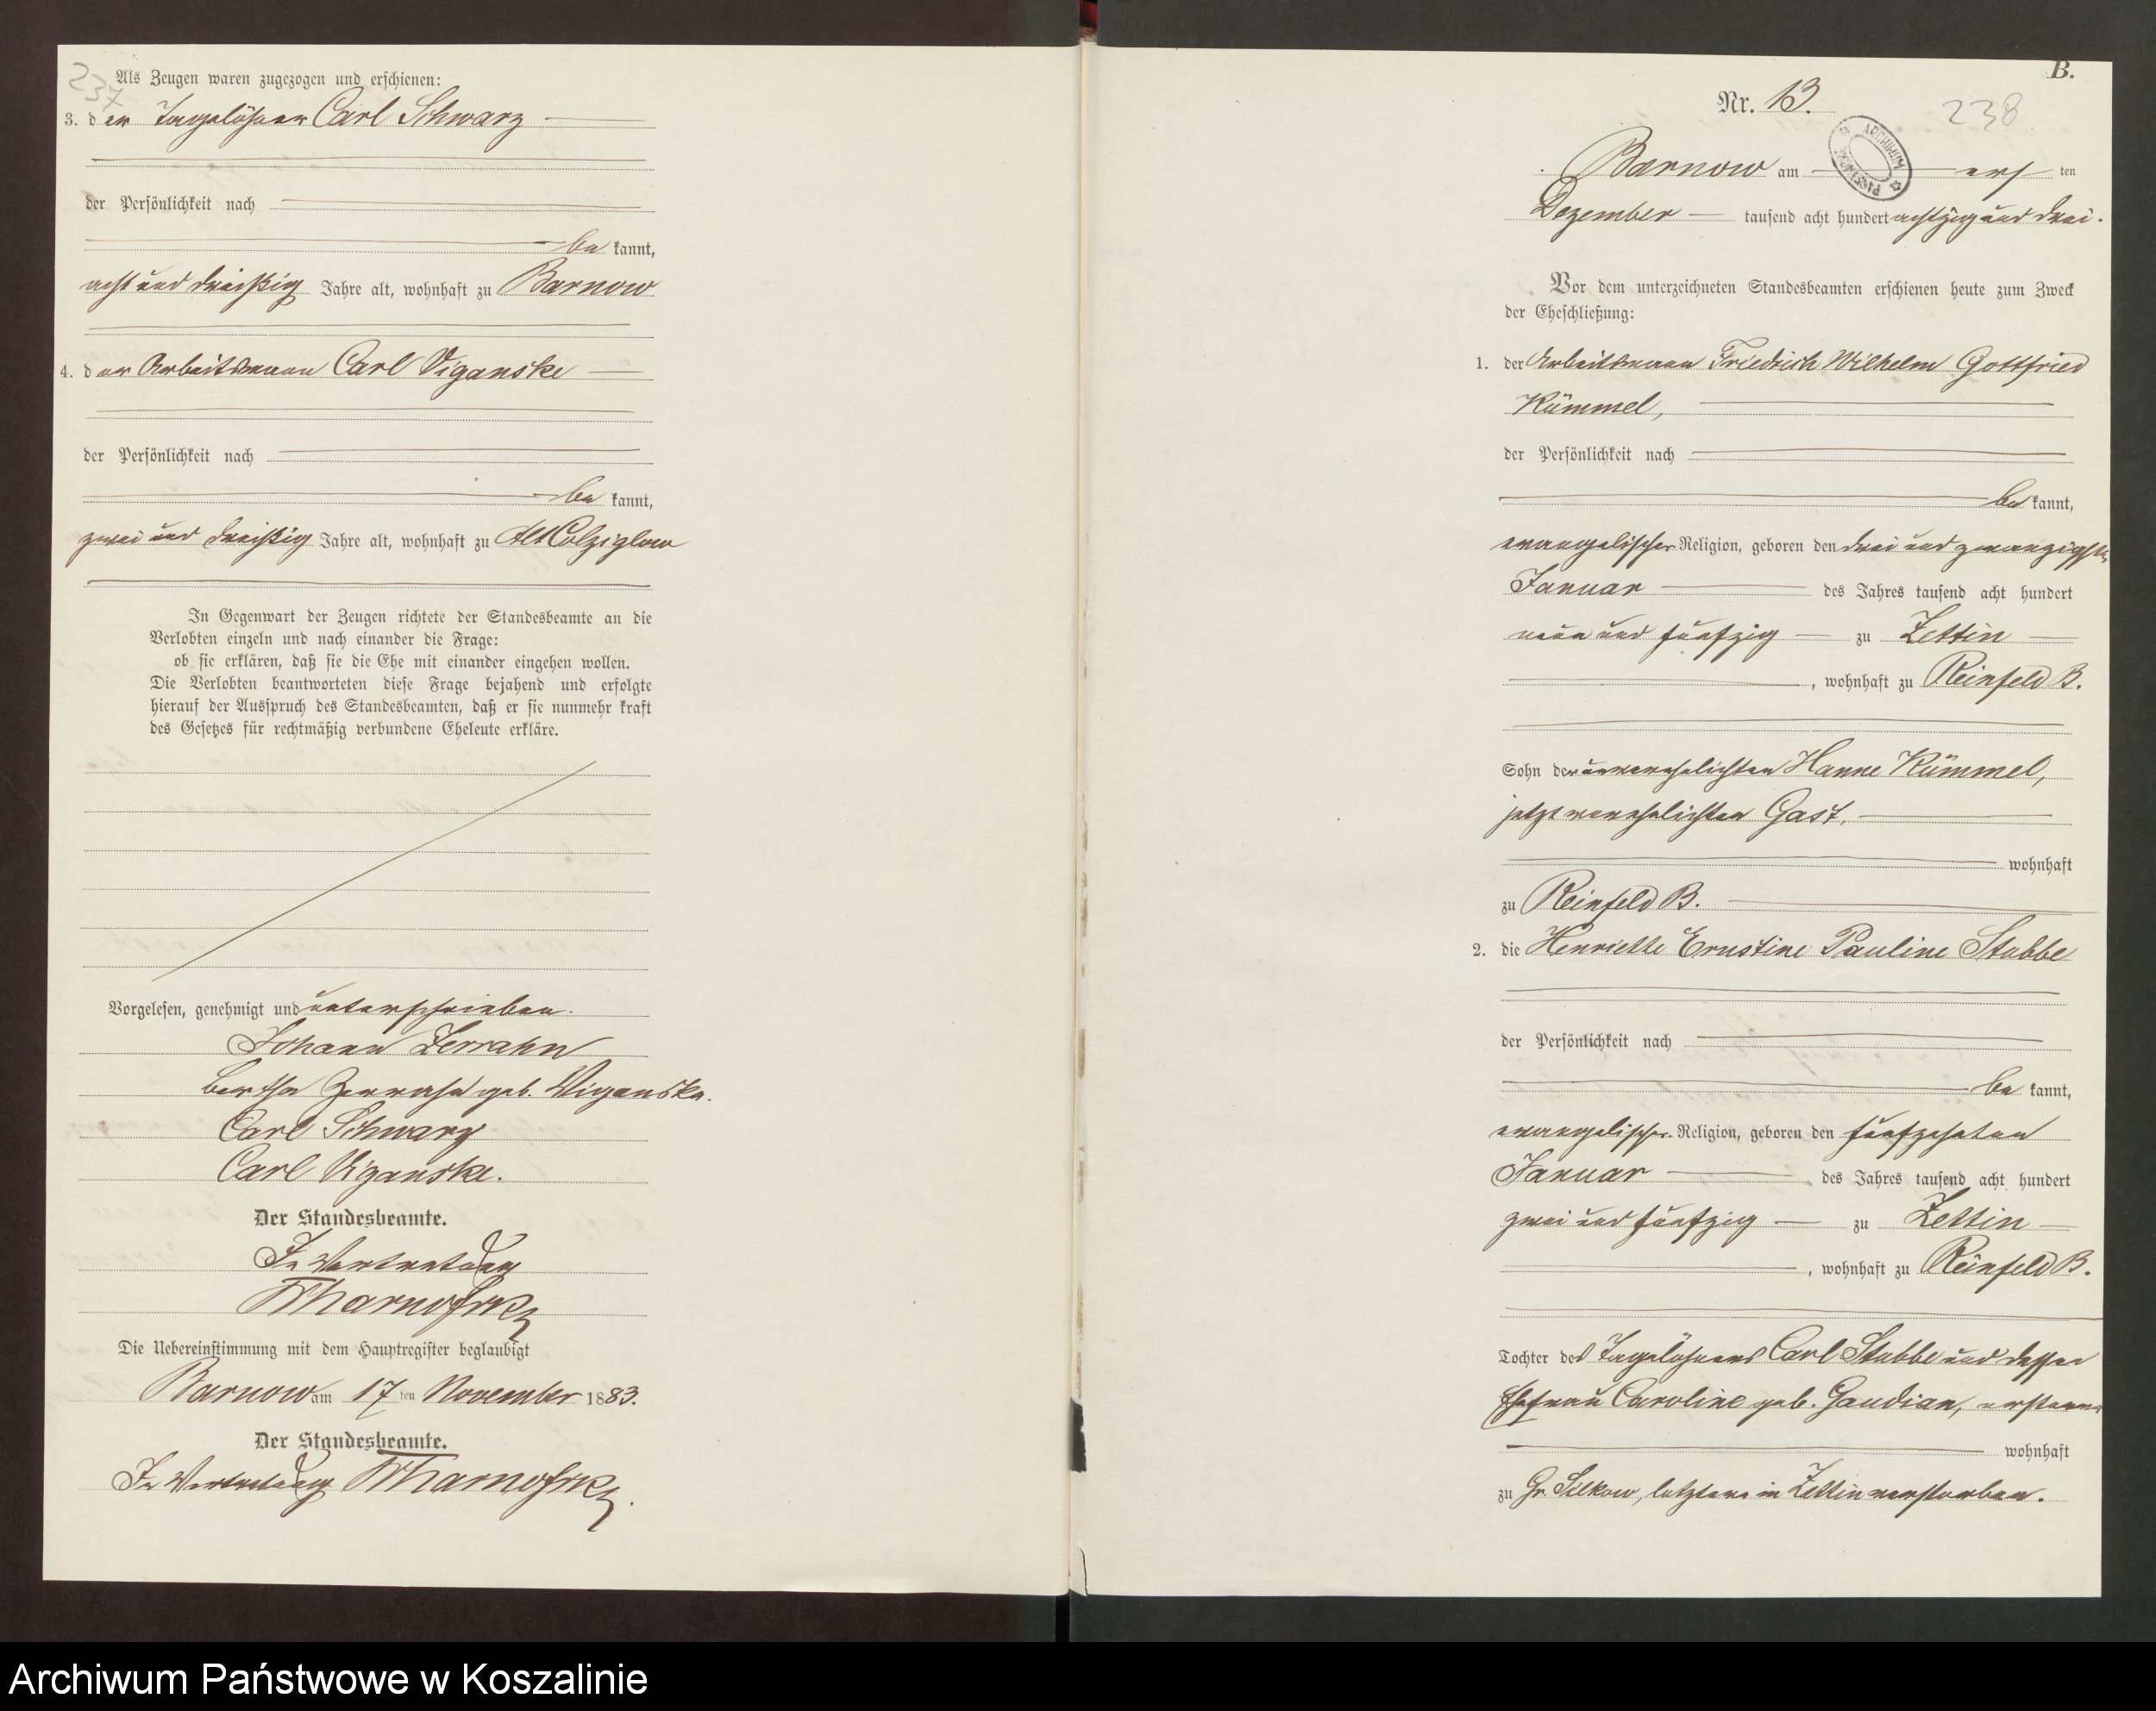 237
Als Zeugen waren zugezogen und erschienen:
3. der Tagelöhner Carl Schwarz
der Persönlichkeit nach
be kannt,
acht und dreißig Jahre alt, wohnhaft zu Barnow
4. der Arbeitsmann Carl Viganske
der Persönlichkeit nach
be kannt,
zwei und dreißig Jahre alt, wohnhaft zu Alt Colziglow
In Gegenwart der Zeugen richtete der Standesbeamte an die
Verlobten einzeln und nach einander die Frage:
ob sie erklären, daß sie die Ehe mit einander eingehen wollen.
Die Verlobten beantworteten diese Frage bejahend und erfolgte
hierauf der Ausspruch des Standesbeamten, daß er sie nunmehr kraft
des Gesetzes für rechtmäßig verbundene Eheleute erkläre.
Vorgelesen, genehmigt und unterschrieben.
Johann Zerrahn
Bertha Zerrahn geb. Viganske.
Carl Schwarz
Carl Viganske.
Der Standesbeamte.
In Vertretung
Die Uebereinstimmung mit dem Hauptregister beglaubigt
Barnow am 17 ten November 1883.
Der Standesbeamte.
In Vertretung
B.
Nr. 13.
238
ARCHIWUM
Barnow am ers ten
Dezember tausend acht hundert achtzig und drei.
Vor dem unterzeichneten Standesbeamten erschienen heute zum Zweck
der Eheschließung:
1. der Arbeitsmann Friedrich Wilhelm Gottfried
Kümmel,
der Persönlichkeit nach
be kannt,
evangelischer Religion, geboren den drei und zwanzigsten
Januar des Jahres tausend acht hundert
neun und fünfzig zu Zettin
, wohnhaft zu Reinfeld B.
Sohn der unverehelichten Hanne Kümmel,
jetzt verehelichten Gast,
wohnhaft
zu Reinfeld B.
2. die Henriette Ernstine Pauline Stubbe
der Persönlichkeit nach
be kannt,
evangelischer Religion, geboren den fünfzehnten
Januar des Jahres tausend acht hundert
zwei und fünfzig zu Zettin
, wohnhaft zu Reinfeld B.
Tochter des Tagelöhners Carl Stubbe und dessen
Ehefrau Caroline geb. Gaudian, ersterer
wohnhaft
zu Gr. Silkow, letztere in Zettin verstorben.
Archiwum Państwowe w Koszalinie